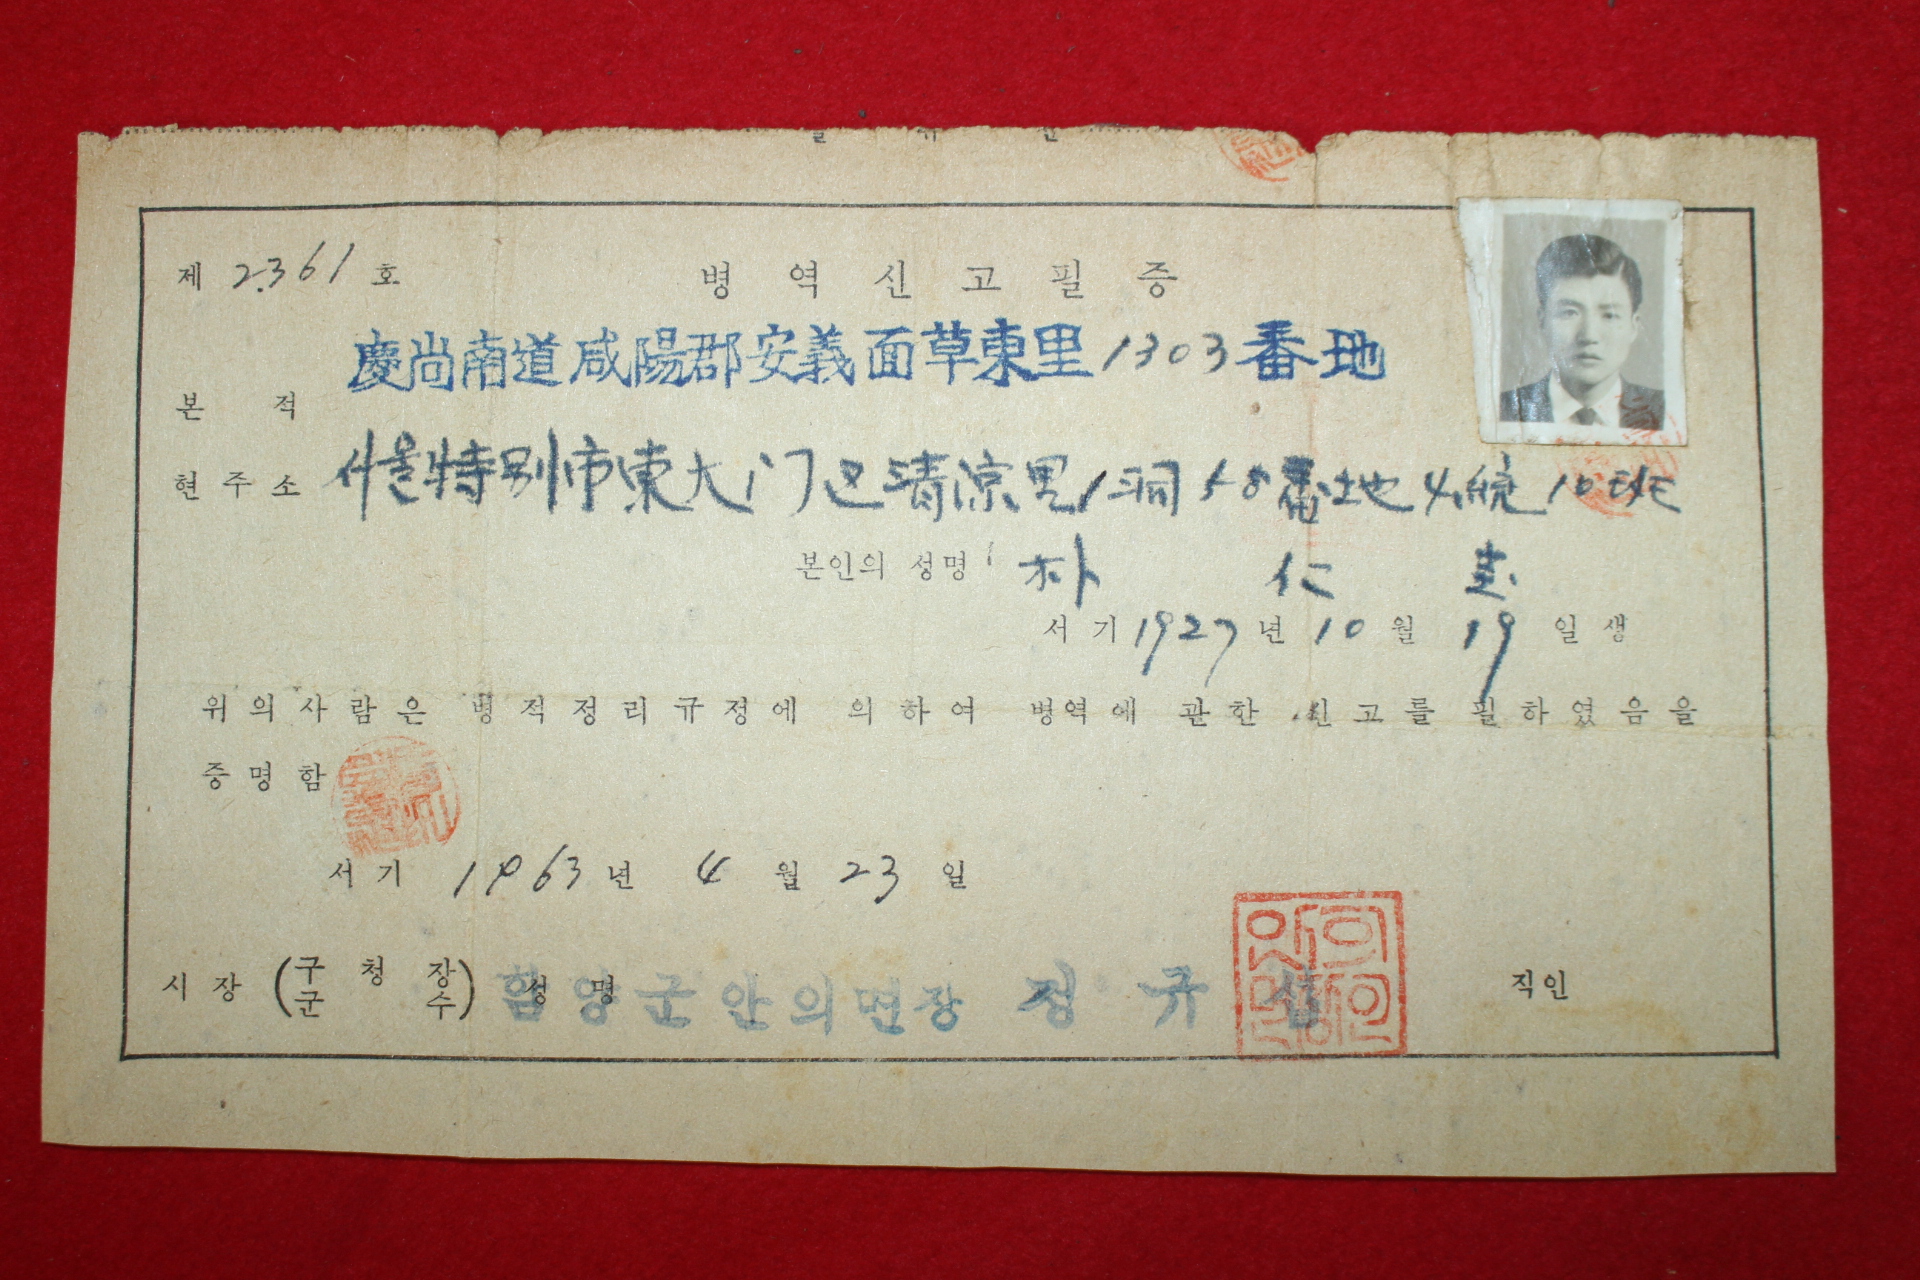 제 2361 호
병역신고필증
본적 慶尚南道咸陽郡安義面草東里1303番地
현주소 서울特別市東大门区清凉里1洞58番地4統10班
본인의 성명 朴仁圭
서기 1927년 10월 19일생
위의사람은 병적정리규정에 의하여 병역에 관한 신고를 필하였음을
증명함
서기 1963년 4월 23일
시장 (구청장 군수) 성명 함양군안의면장 정규 직인